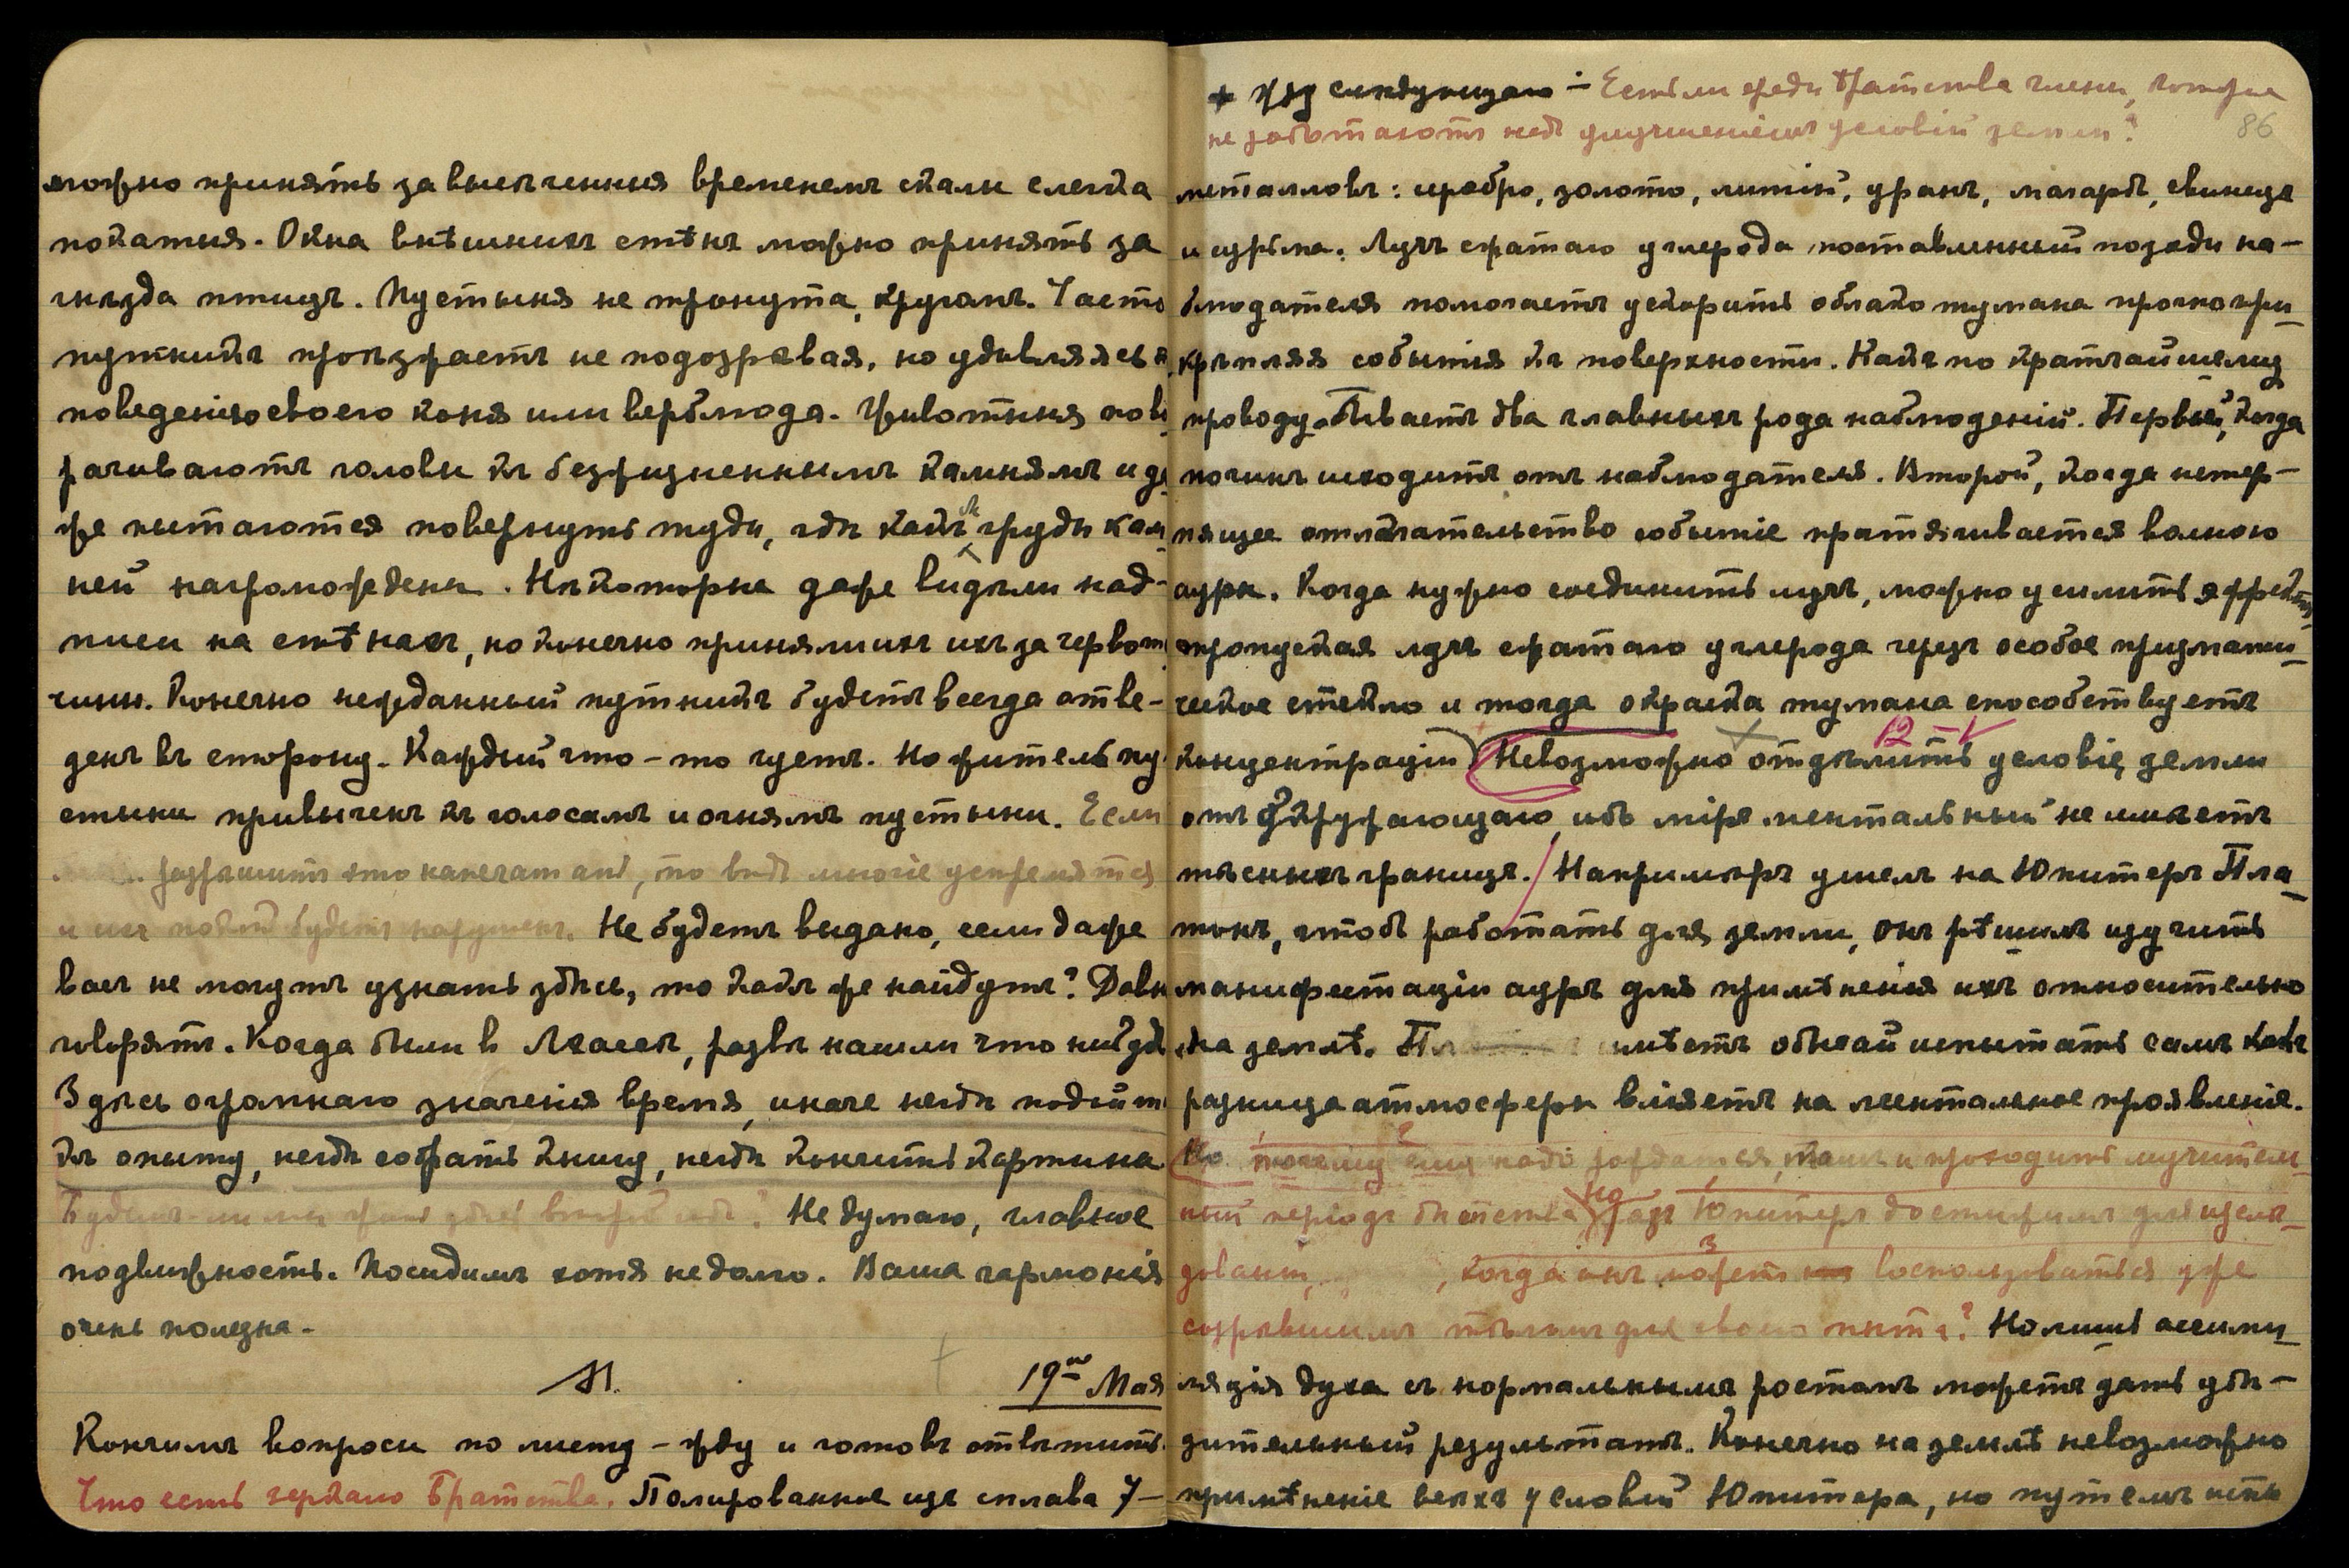 можно принять за высѣченныя временемъ скалы слегка
покатыя. Окна внѣшнихъ стѣнъ можно принять за
гнѣзда птицъ. Пустыня не тронута кругомъ. Часто
путникъ проѣзжаетъ не подозрѣвая, но удивляясь
поведенію своего коня или верблюда. Животныя пово
рачиваютъ головы къ безжизненнымъ камнямъ и да
же пытаются повернуть туда, гдѣ какъ груды кам
ней нагромождены. Нѣкоторые даже видѣли над-
писи на стѣнахъ, но конечно приняли ихъ за червот
чины. Конечно нежданный путникъ будетъ всегда отве-
денъ въ сторону. Каждый что-то чуетъ. Но житель пу
стыни привыченъ къ голосамъ и огнямъ пустыни. Если
разрѣшитъ это напечатать, то вѣдь многіе устремятся
и ихъ покой будетъ нарушенъ. Не будетъ выдано, если даже
васъ не могутъ узнать здѣсь, то какъ же найдутъ? Давно
говорятъ. Когда были въ Лхассѣ, развѣ нашли что нибудь
Здѣсь огромнаго значенія время, иначе негдѣ подойти
къ опыту, негдѣ собрать книгу, негдѣ кончить картины.
Будемъ ли мы жить здѣсь второй годъ? Не думаю, главное
подвижность. Посидимъ хотя недолго. Ваша гармонія
очень полезна.
М.
19го Мая
Кончимъ вопросы по листу – жду и готовъ отвѣтить.
Что есть зеркало Братства. Полированное изъ сплава 7-
+ жду слѣдующаго – Есть ли среди Братства члены, которые
не работаютъ надъ улучшеніемъ условій земли?
86
металловъ: серебро, золото, литій, уранъ, магарѣ, свинецъ
и сурьма. Лучъ сжатаго углерода поставленный позади на-
блюдателя помогаетъ ускорить облако тумана прочно при
крѣпляя событія къ поверхности. Какъ по кратчайшему
проводу. Бываетъ два главныхъ рода наблюденій. Первый, когда
починъ исходитъ отъ наблюдателя. Второй, когда нетер-
пящее отлагательство событіе притягивается волною
ауры. Когда нужно соединить лучъ, можно усилить эффектъ,
пропуская лучъ сжатаго углерода черезъ особое призмати
ческое стекло и тогда окраска тумана способствуетъ
концентраціи. Невозможно отдѣлить условіе земли
12 – V
отъ окружающаго, ибо міръ ментальный не имѣетъ
тѣсныхъ границъ. Напримѣръ ушелъ на Юпитеръ Пла
тонъ, чтобъ работать для земли, онъ рѣшилъ изучить
манифестаціи ауръ для примѣненія ихъ относительно
на землѣ. имѣетъ обычай испытать самъ какъ
разница атмосферы вліяетъ на ментальное проявленіе.
Но почему ему надо рождаться тамъ и проходить мучитель
ный періодъ дѣтства, но разъ Юпитеръ достижимъ для
когда онъ можетъ воспользоваться уже
созрѣвшимъ тѣломъ для своего опыта? Но лишь ассими
ляція духа съ нормальнымъ ростомъ можетъ дать убѣ-
дительный результатъ. Конечно на землѣ невозможно
примѣненіе всѣхъ условій Юпитера, но путемъ